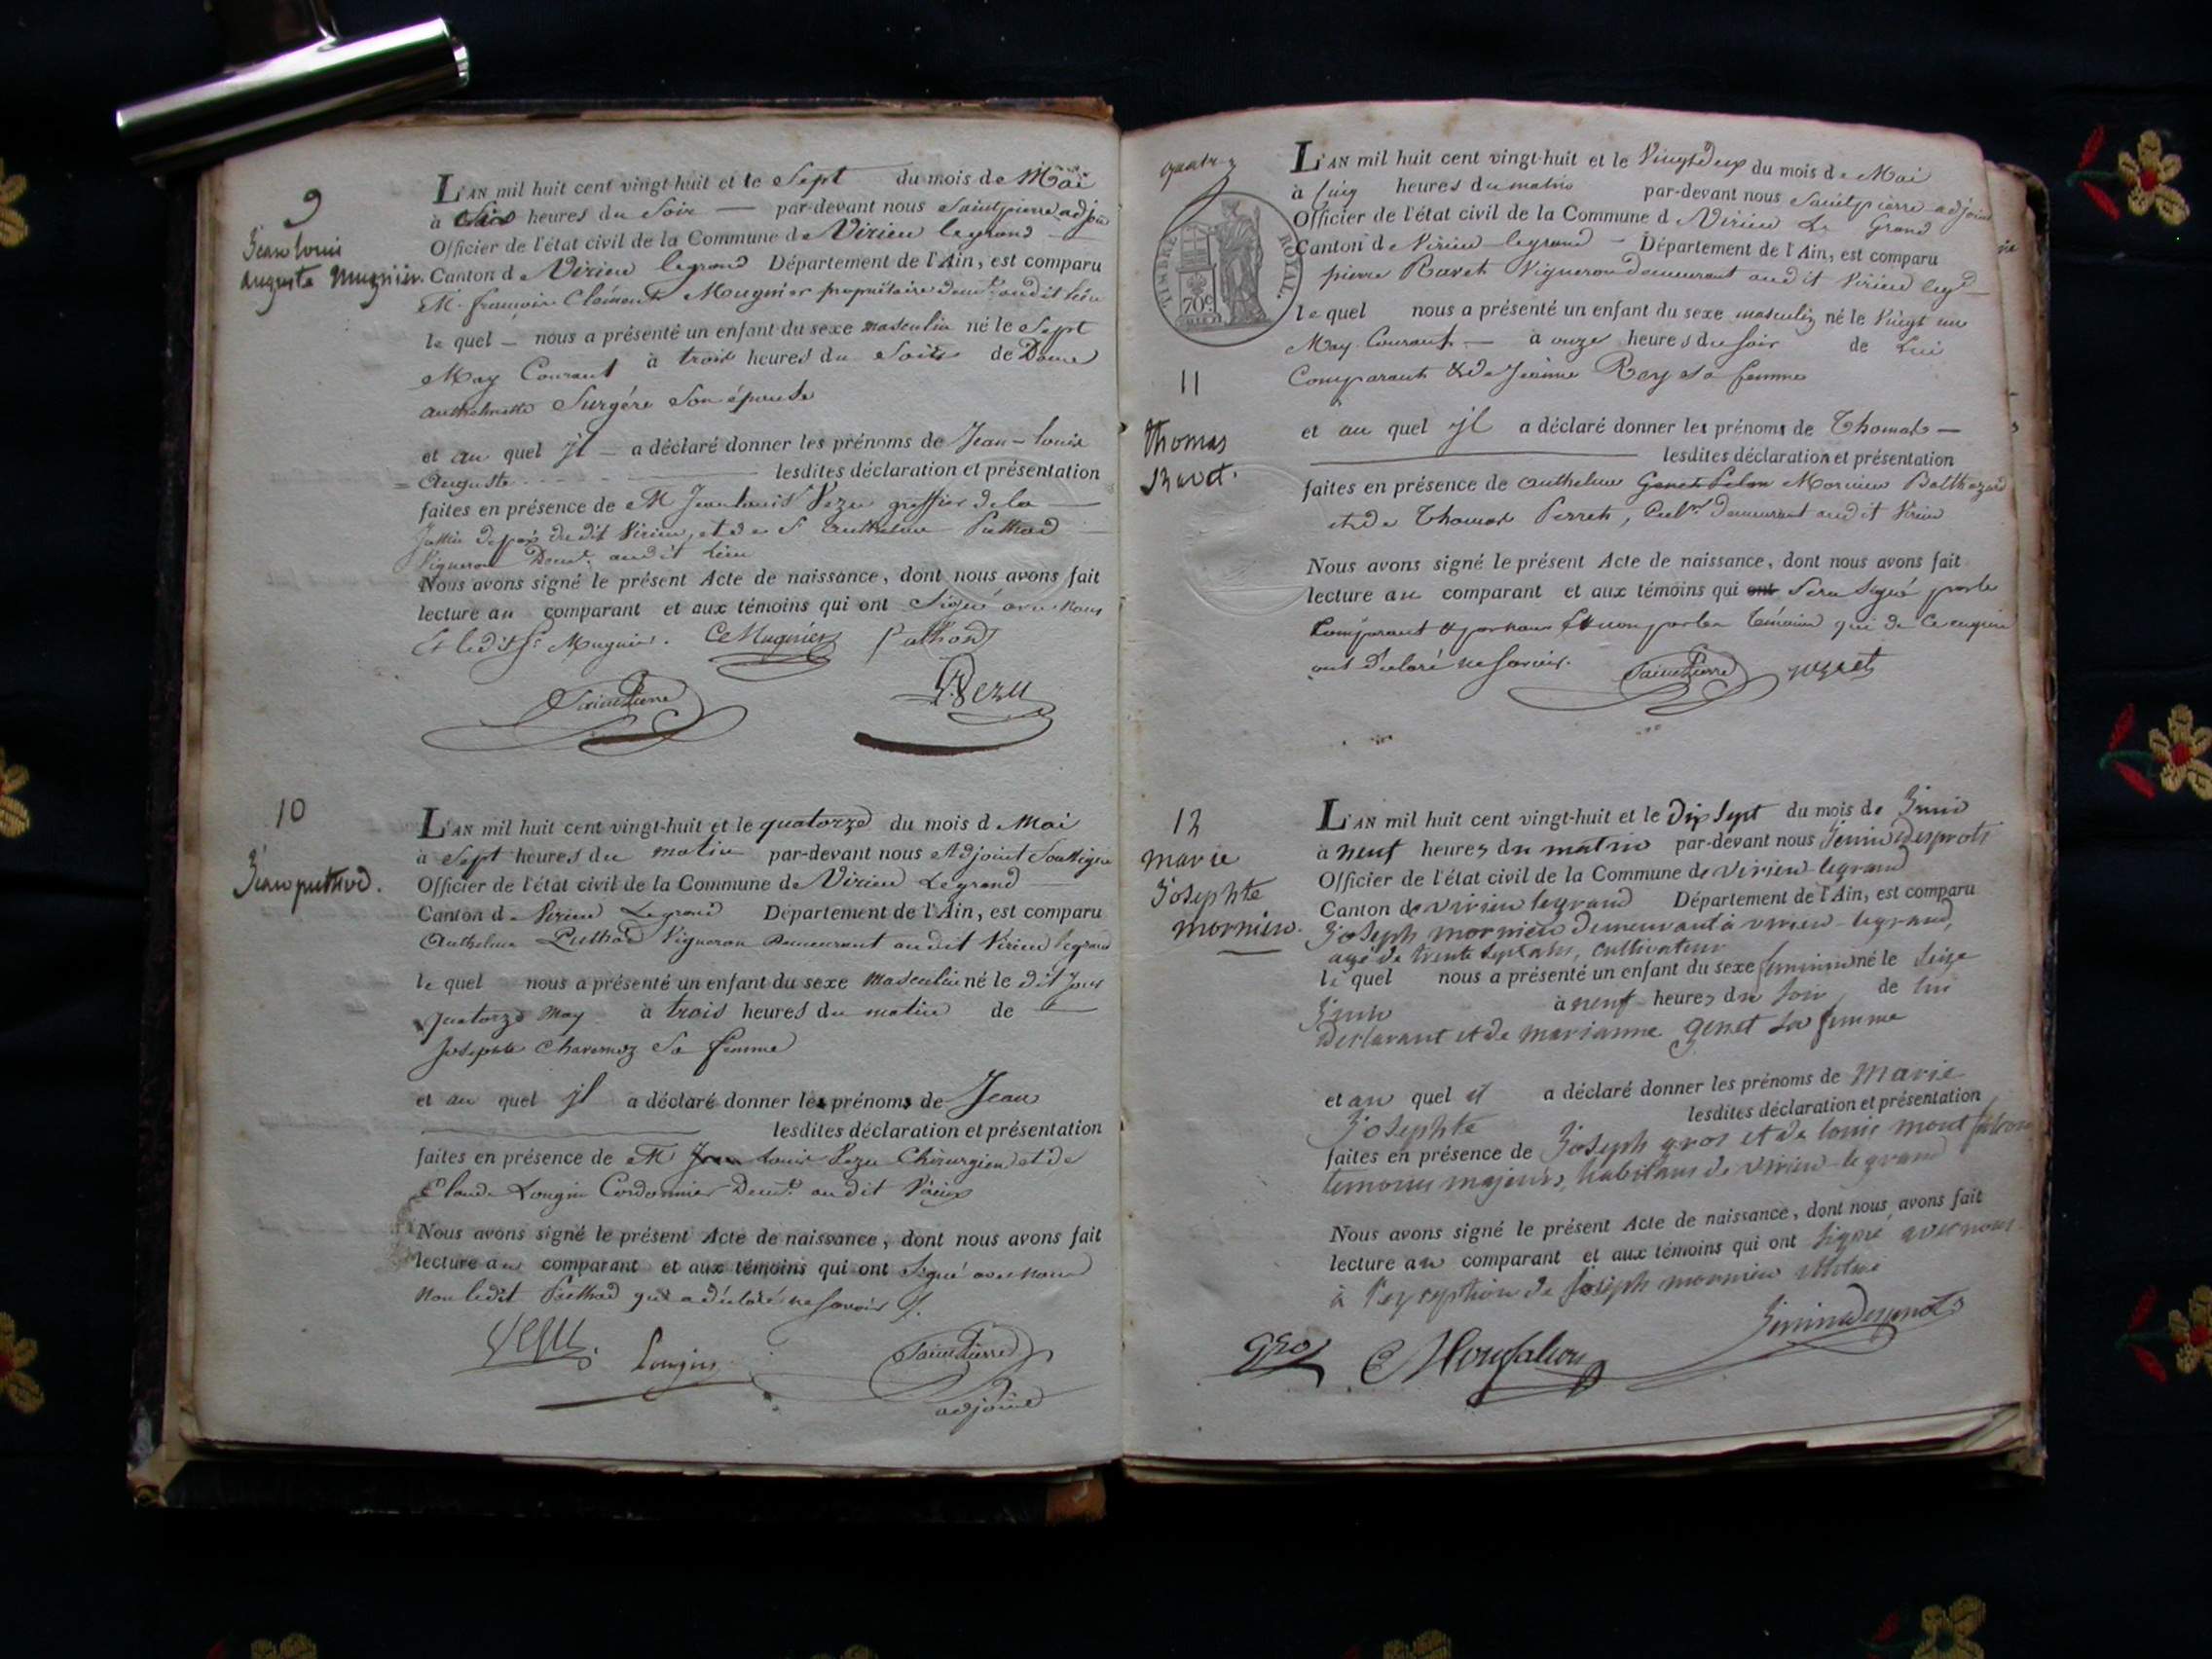 9
Jean louis
auguste Mugnier.
L'AN mil huit cent vingt-huit et le Sept du mois de Mai
à Six heures du Soir — par-devant nous Saintpierre adjoin
Officier de l'état civil de la Commune de Virieu legrand —
Canton de Virieu legrand Département de l'Ain, est comparu
M. françois Clément Mugnier propriétaire demt. audit lieu
le quel — nous a présenté un enfant du sexe masculin né le Sept
May Courant à trois heures du Soir de Dame
anthelmette Surgére Son épouse
et au quel jl — a déclaré donner les prénoms de Jean-louis
= Auguste. lesdites déclaration et présentation
faites en présence de M Jean louis Vezu greffier de la —
Justice de paix dudit Virieu, et de S. Anthelme Puthod
Vigneron Demt. audit lieu
Nous avons signé le présent Acte de naissance, dont nous avons fait
lecture au comparant et aux témoins qui ont Signé avec nous
Et ledit Sr Mugnier. CMugnier Puthod
SaintPierre Vezu
10
Jean puthod.
L'AN mil huit cent vingt-huit et le quatorze du mois d Mai
à Sept heures du matin par-devant nous Adjoint Soussigné
Officier de l'état civil de la Commune de Virieu Legrand —
Canton de Virieu Legrand Département de l'Ain, est comparu
Anthelme Puthod Vigneron demeurant audit Virieu legrand
le quel nous a présenté un enfant du sexe masculin né le dit jour
quatorze May à trois heures du matin de —
Josephte Charvemoz Sa femme
et au quel jl a déclaré donner les prénoms de Jean
lesdites déclaration et présentation
faites en présence de M Jean Louis Vezu Chirurgien et de
Claude Longin Cordonnier Demt. audit Virieu
Nous avons signé le présent Acte de naissance, dont nous avons fait
lecture au comparant et aux témoins qui ont Signé avec nous
Non ledit Puthod qui a déclaré ne Savoir /.
Vezu. Longin SaintPierre
adjoint
quatre
TIMBRE ROYAL.
70c.
11
thomas
Ravet.
L'AN mil huit cent vingt-huit et le Vingt deux du mois de Mai
à Cinq heures du matin par-devant nous Saintpierre adjoint
Officier de l'état civil de la Commune d Virieu Le Grand
Canton de Virieu legrand — Département de l'Ain, est comparu
pierre Ravet Vigneron demeurant audit Virieu legd —
le quel nous a présenté un enfant du sexe masculin né le Vingt un
May Courant — à onze heures du soir de Lui
Comparant & de Jeanne Rey sa femme
et au quel jl a déclaré donner les prénoms de Thomas —
lesdites déclaration et présentation
faites en présence de anthelme Mornieu Balthazard
et de Thomas Perret, Cultrs. demeurant audit Virieu
Nous avons signé le présent Acte de naissance, dont nous avons fait
lecture au comparant et aux témoins qui ont Sera Signé par le
Comparant & par nous & non par les témoins qui de ce enquis
ont déclaré ne Savoir. SaintPierre
12
marie
Josephte
mornieu.
L'AN mil huit cent vingt-huit et le Dix Sept du mois de Juin
à neuf heures du matin par-devant nous Jenin Desprots
Officier de l'état civil de la Commune de virieu-legrand
Canton de virieu legrand Département de l'Ain, est comparu
Joseph mornieu demeurant à virieu-legrand,
agé de trente Sept ans, cultivateur
le quel nous a présenté un enfant du sexe feminin né le Seize
Juin à neuf heures du Soir, de lui
declarant et de marianne genet sa femme
et au quel il a déclaré donner les prénoms de marie
Josephte lesdites déclaration et présentation
faites en présence de Joseph gros et de louis montfalcon
temoins majeurs, habitans de virieu-le grand
Nous avons signé le présent Acte de naissance, dont nous avons fait
lecture au comparant et aux témoins qui ont Signé avec nous
à l'exception de Joseph mornieu
Gros Monfalcon JeninDesprots